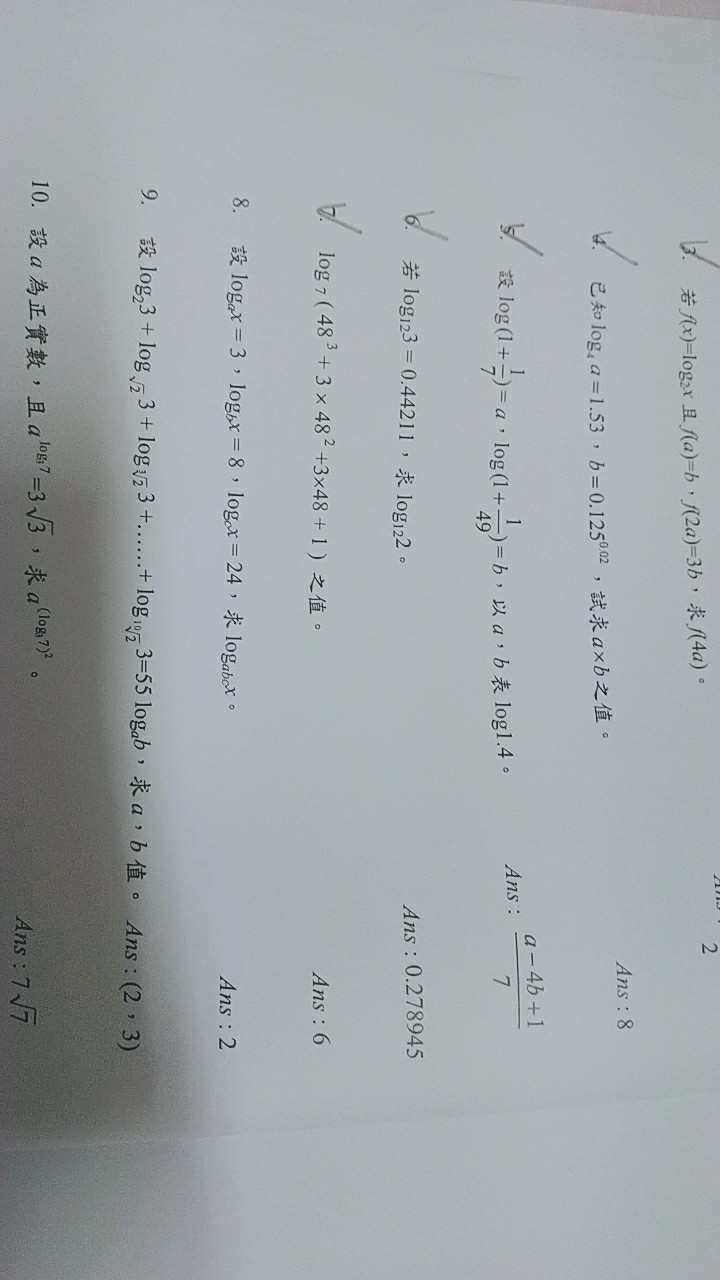 2
3. 若 f(x)=log₂x 且 f(a)=b，f(2a)=3b，求 f(4a)。
4. 已知 log₄ a=1.53，b=0.125^0.02，試求 a×b 之值。 Ans：8
5. 設 log(1+1/7)=a，log(1+1/49)=b，以 a，b 表 log1.4。 Ans：(a−4b+1)/7
6. 若 log₁₂3=0.44211，求 log₁₂2。 Ans：0.278945
7. log₇(48³+3×48²+3×48+1) 之值。 Ans：6
8. 設 logₐx=3，log_b x=8，log_c x=24，求 log_abc x。 Ans：2
9. 設 log₂3+log_√2 3+log_∛2 3+……+log_¹⁰√2 3=55 logₐb，求 a，b 值。 Ans：(2，3)
10. 設 a 為正實數，且 a^(log₃7)=3√3，求 a^(log₃7)²。 Ans：7√7